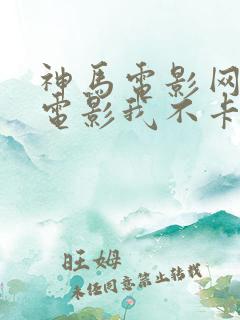 神馬電影网
電影我不卡
旺姆
未经同意禁止转载